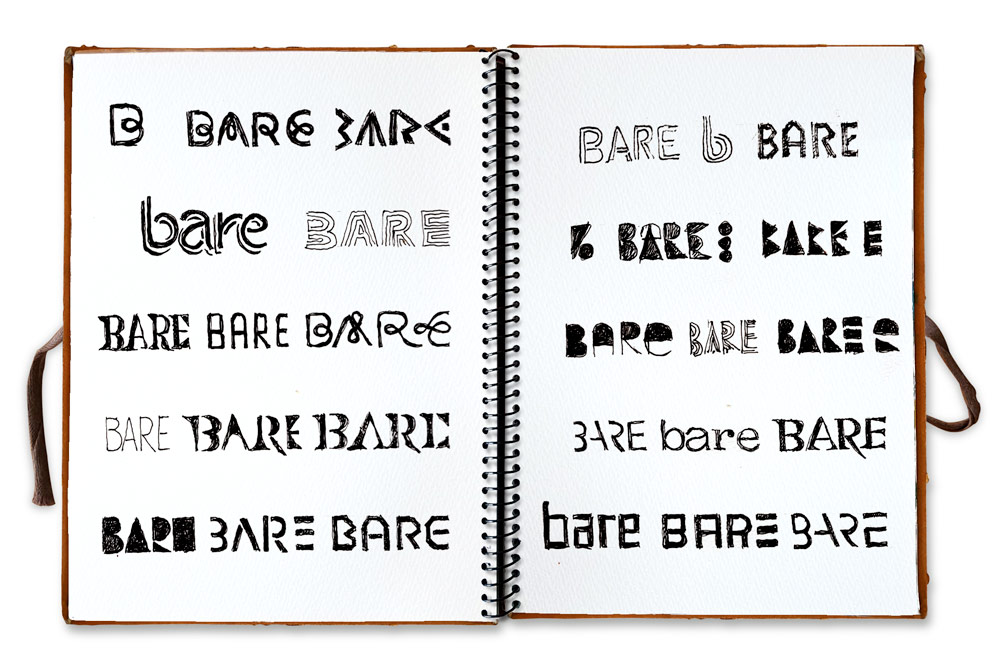 B BARE BARE
bare BARE
BARE BARE BARE
BARE BARE BARE
BARE BARE BARE
BARE b BARE
b BARE BARE
BARe BARE BARE e
BARE bare BARE
bare BARE BARE